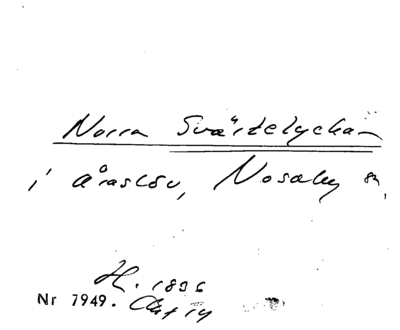 Norra Svärtelyckan
i Åraslöv, Nosaby sn,
H. 1896
Nr 7949.